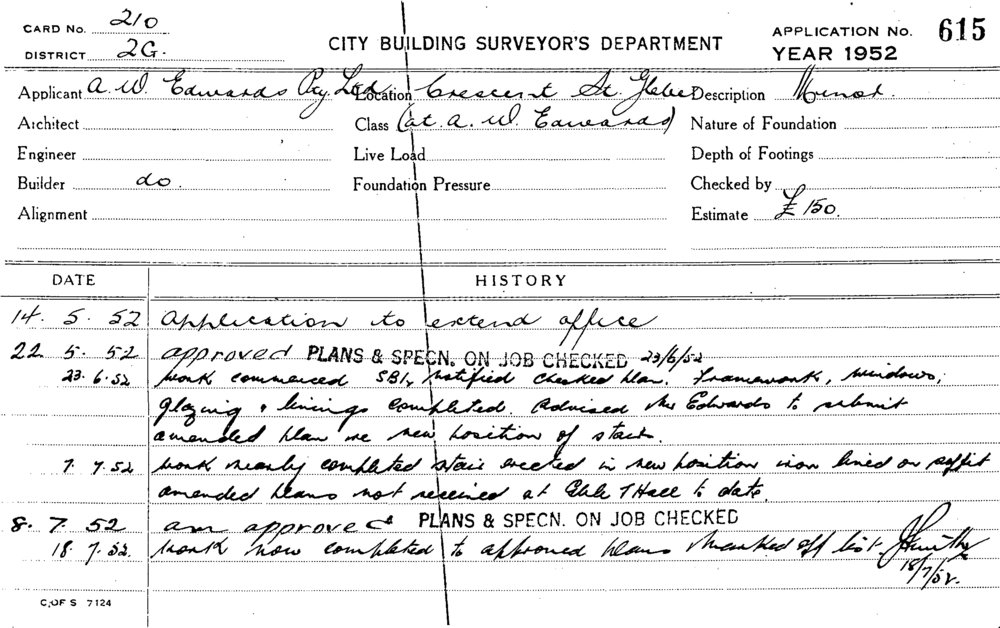 CARD No. 210
DISTRICT 2G.
CITY BUILDING SURVEYOR'S DEPARTMENT
APPLICATION No. 615
YEAR 1952
Applicant A. W. Edwards Pty. Ltd Location Crescent St. Glebe Description Minor.
Architect Class (at A. W. Edwards) Nature of Foundation
Engineer Live Load Depth of Footings
Builder do. Foundation Pressure Checked by
Alignment Estimate £150.
DATE HISTORY
14. 5. 52 Application to extend office
22. 5. 52 approved PLANS & SPECN. ON JOB CHECKED 23/6/52
23. 6. 52 work commenced notified checked plan. Framework, windows,
glazing & linings completed. Advised Mr Edwards to submit
amended plan re new position of stair.
7. 7. 52 work nearly completed stair erected in new position iron lined on soffit
amended plans not received at Hall to date.
8. 7. 52 am approved PLANS & SPECN. ON JOB CHECKED
18. 7. 52. work now completed to approved plans Marked off list.
18/7/52.
C. OF S 7124